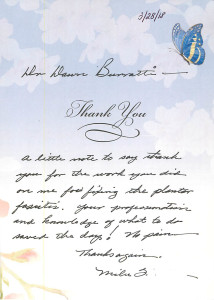 3/28/18
Dr Dawn Buratti
Thank You
A little note to say thank
you for the work you did
on me for fixing the planter
fascitis. Your professionalism
and knowledge of what to do
saved the day! No pain
Thanks again
Mike